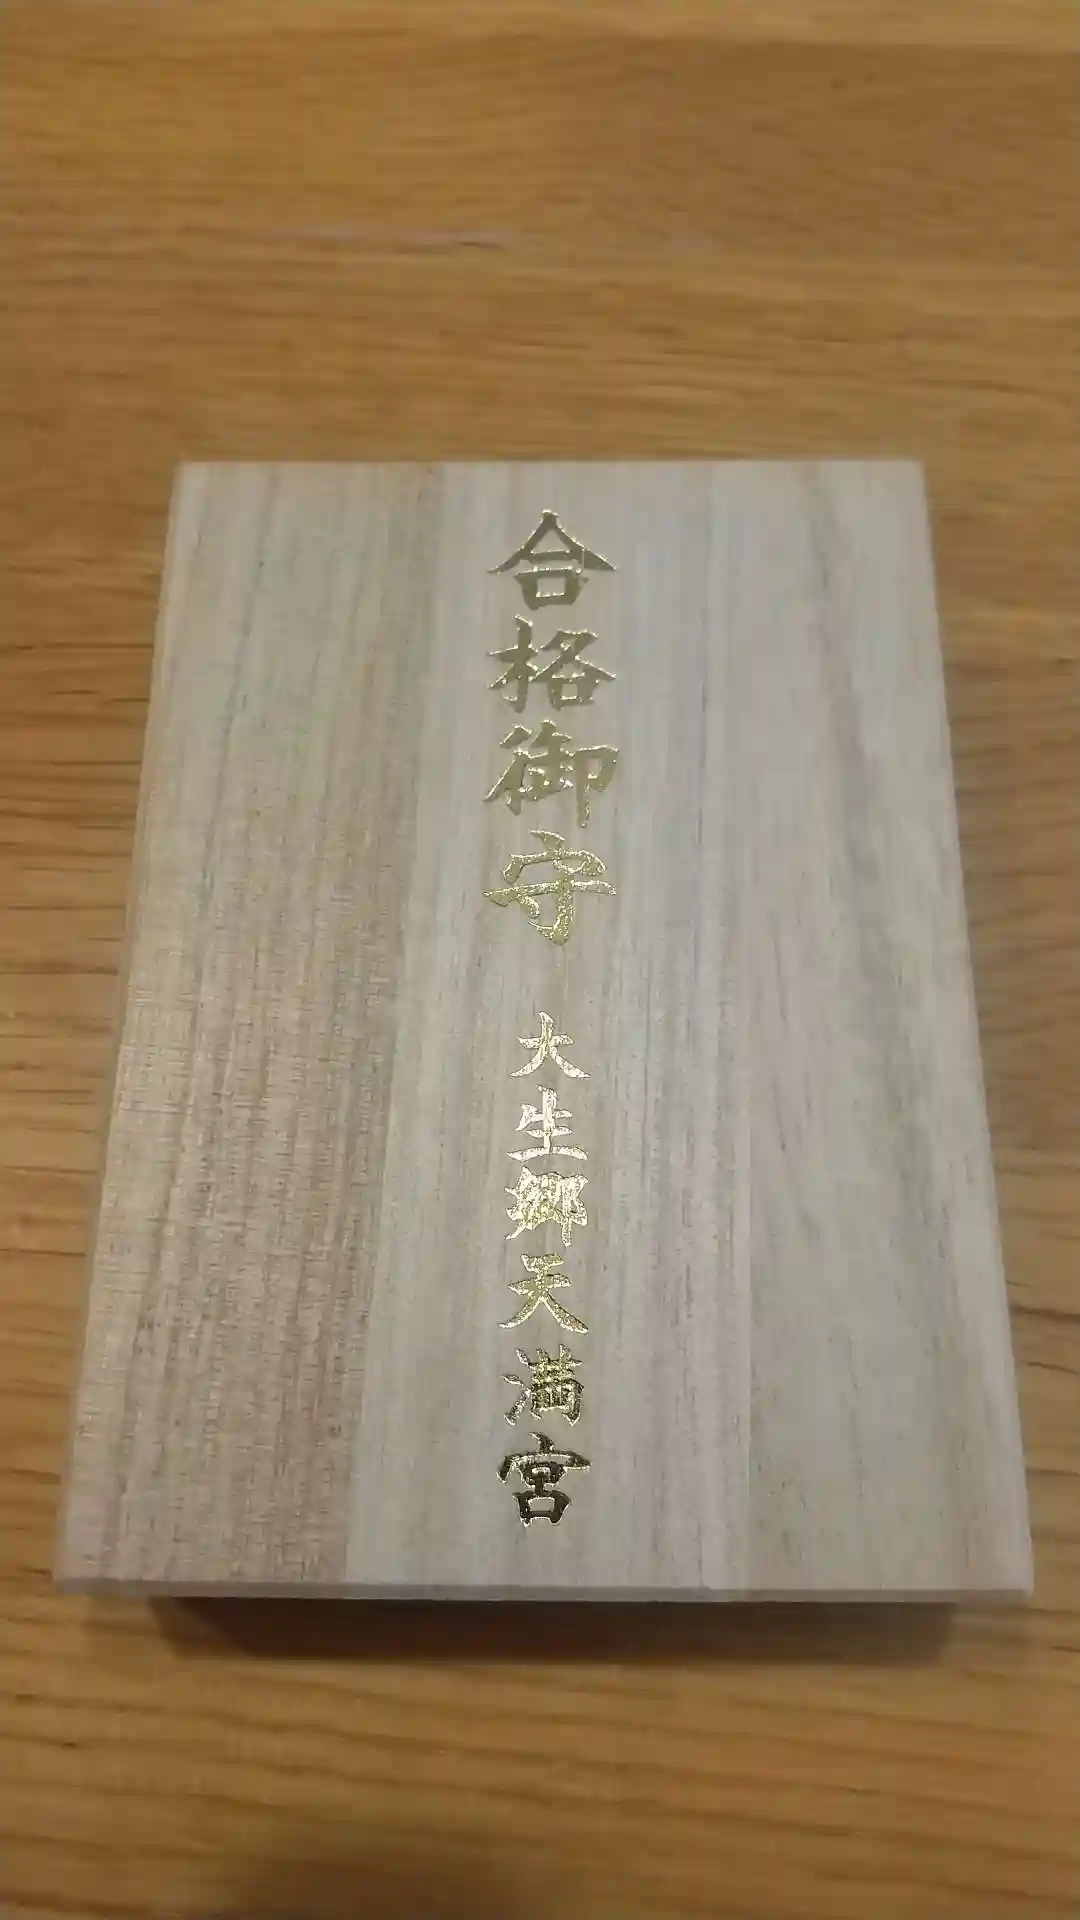 合格御守 大生郷天満宮